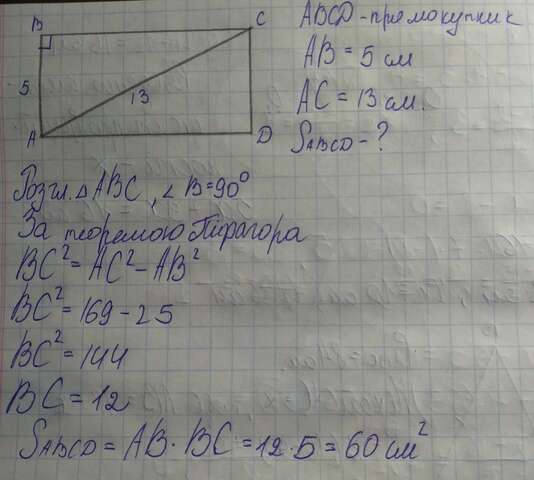 B
C
5
13
A
D
ABCD - прямокутник
AB = 5 см
AC = 13 см.
SABCD - ?
Розгл. △ABC, ∠B=90°
За теоремою Піфагора
BC² = AC² - AB²
BC² = 169 - 25
BC² = 144
BC = 12
SABCD = AB · BC = 12 · 5 = 60 см²